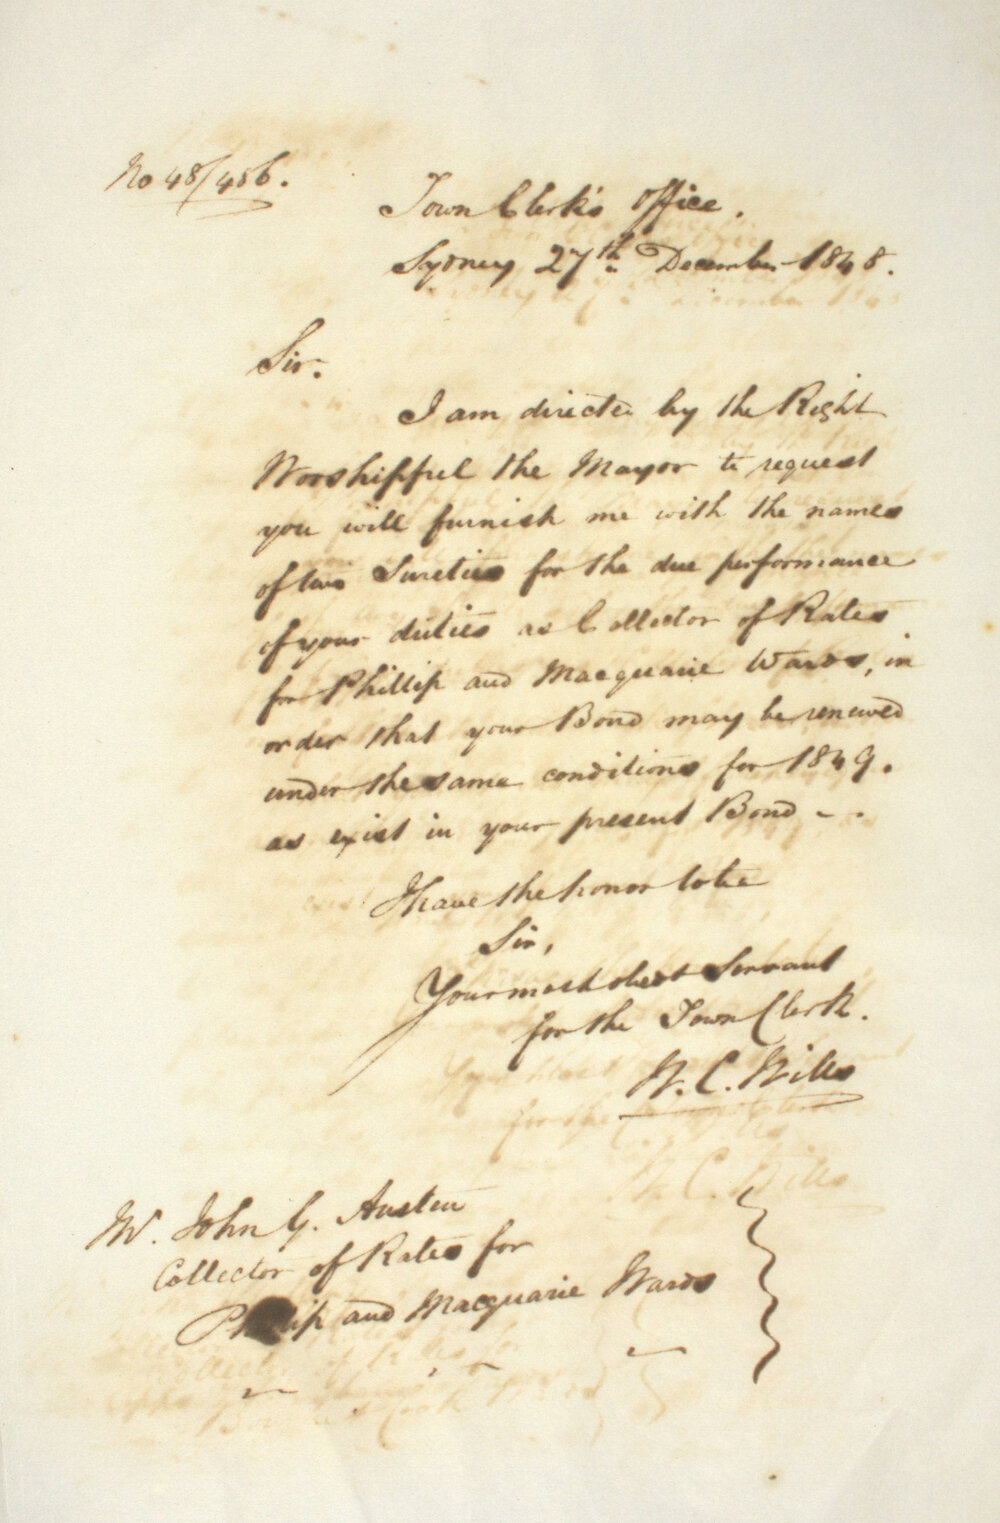 No 48/486.
Town Clerk's Office.
Sydney 27th December 1848.
Sir.
I am directed by the Right
Worshipful the Mayor to request
you will furnish me with the names
of two Sureties for the due performance
of your duties as Collector of Rates
for Phillip and Macquarie Wards, in
order that your Bond may be renewed
under the same conditions for 1849.
as exist in your present Bond - .
I have the honor to be
Sir,
Your most obedt Servant
for the Town Clerk.
W. C. Wills
Mr. John G. Austin
Collector of Rates for
and Macquarie Wards